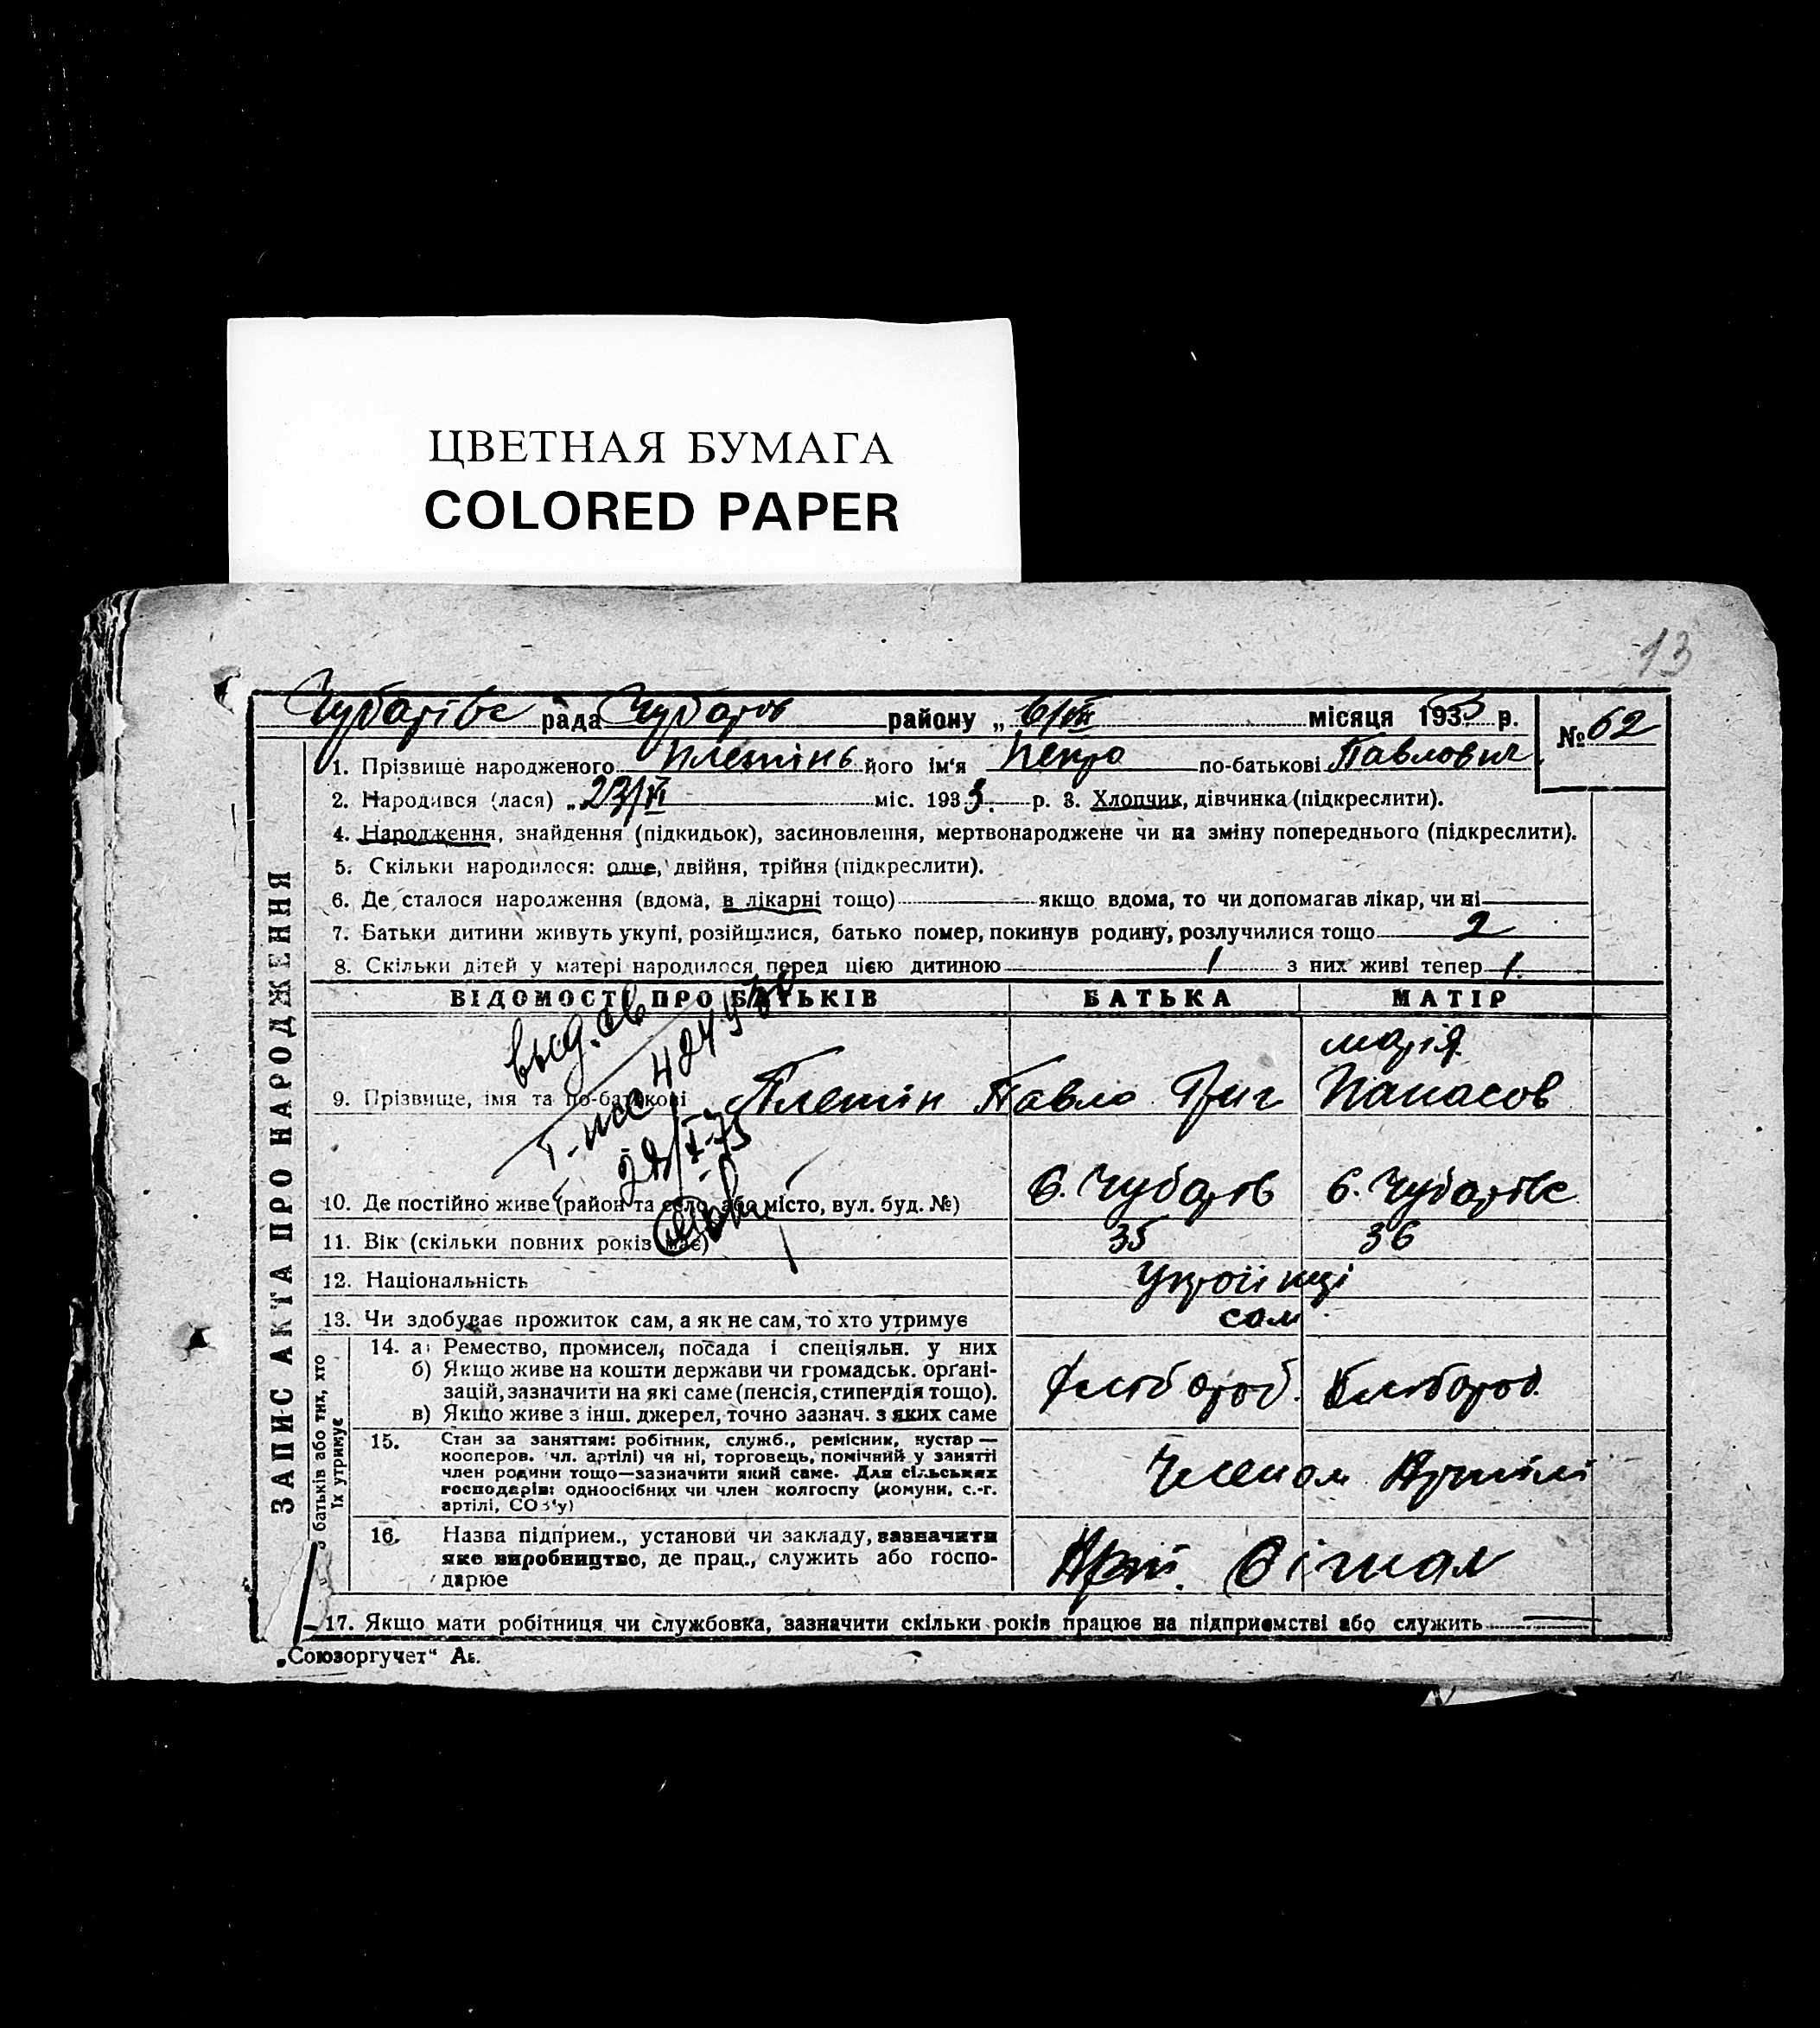 ЦВЕТНАЯ БУМАГА
COLORED PAPER
13
Чубарівс рада Чубарів району „ 6/VII місяця 1933 р. № 62
ЗАПИС АКТА ПРО НАРОДЖЕННЯ
1. Прізвище народженого Плетінь його ім'я Петро по-батькові Павлович
2. Народився (лася) „ 23/VI міс. 1933. р. 3. Хлопчик, дівчинка (підкреслити).
4. Народження, знайдення (підкидьок), засиновлення, мертвонароджене чи на зміну попереднього (підкреслити).
5. Скільки народилося: одне, двійня, трійня (підкреслити).
6. Де сталося народження (вдома, в лікарні тощо) якщо вдома, то чи допомагав лікар, чи ні
7. Батьки дитини живуть укупі, розійшлися, батько помер, покинув родину, розлучилися тощо 2
8. Скільки дітей у матері народилося перед цією дитиною 1 з них живі тепер 1.
ВІДОМОСТІ ПРО БАТЬКІВ БАТЬКА МАТІР
выд. св
Марія
9. Прізвище, імя та по-батькові Плетін Павло Григ Панасов
10. Де постійно живе (район та село, або місто, вул. буд. №) с. Чубарів с. Чубарівс
11. Вік (скільки повних років має) 35 36
12. Національність Українці
13. Чи здобуває прожиток сам, а як не сам, то хто утримує сам
з батьків або тих, хто їх утримує
14. а) Ремество, промисел, посада і спеціяльн. у них
б) Якщо живе на кошти держави чи громадськ. органі-
зацій, зазначити на які саме (пенсія, стипендія тощо).
в) Якщо живе з інш. джерел, точно зазнач. з яких саме
Хлібороб. Хлібороб.
15. Стан за заняттям: робітник, служб., ремісник, кустар —
кооперов. (чл. артілі) чи ні, торговець, помічний у занятті
член родини тощо—зазначити який саме. Для сільських
господарів: одноосібних чи член колгоспу (комуни, с.-г.
артілі, СОЗ'у)
Членом Артілі
16. Назва підприєм., установи чи закладу, зазначити
яке виробництво, де прац., служить або госпо-
дарює
Арт. Сігнал
17. Якщо мати робітниця чи службовка, зазначити скільки років працює на підприємстві або служить
„Союзоргучет"